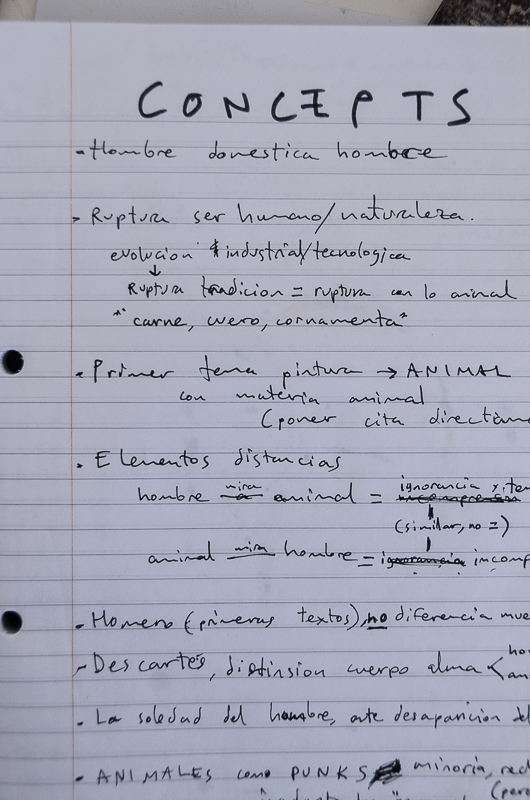 CONCEPTS
- Hombre domestica hombre
> Ruptura ser humano/naturaleza.
evolucion industrial/tecnologica
↓
Ruptura tradicion = ruptura con lo animal
"carne, cuero, cornamenta"
- Primer tema pintura → ANIMAL
con materia animal
(poner cita directam
• Elementos distancias
hombre mira animal = ignorancia y te
(similar, no =)
animal mira hombre = ignorancia incomp
- Homero (primeros textos), no diferencia mue
- Descartes, distinsion cuerpo alma < ho
an
• La soledad del hombre, ante desaparicion del
• ANIMALES como PUNKS minoria, red